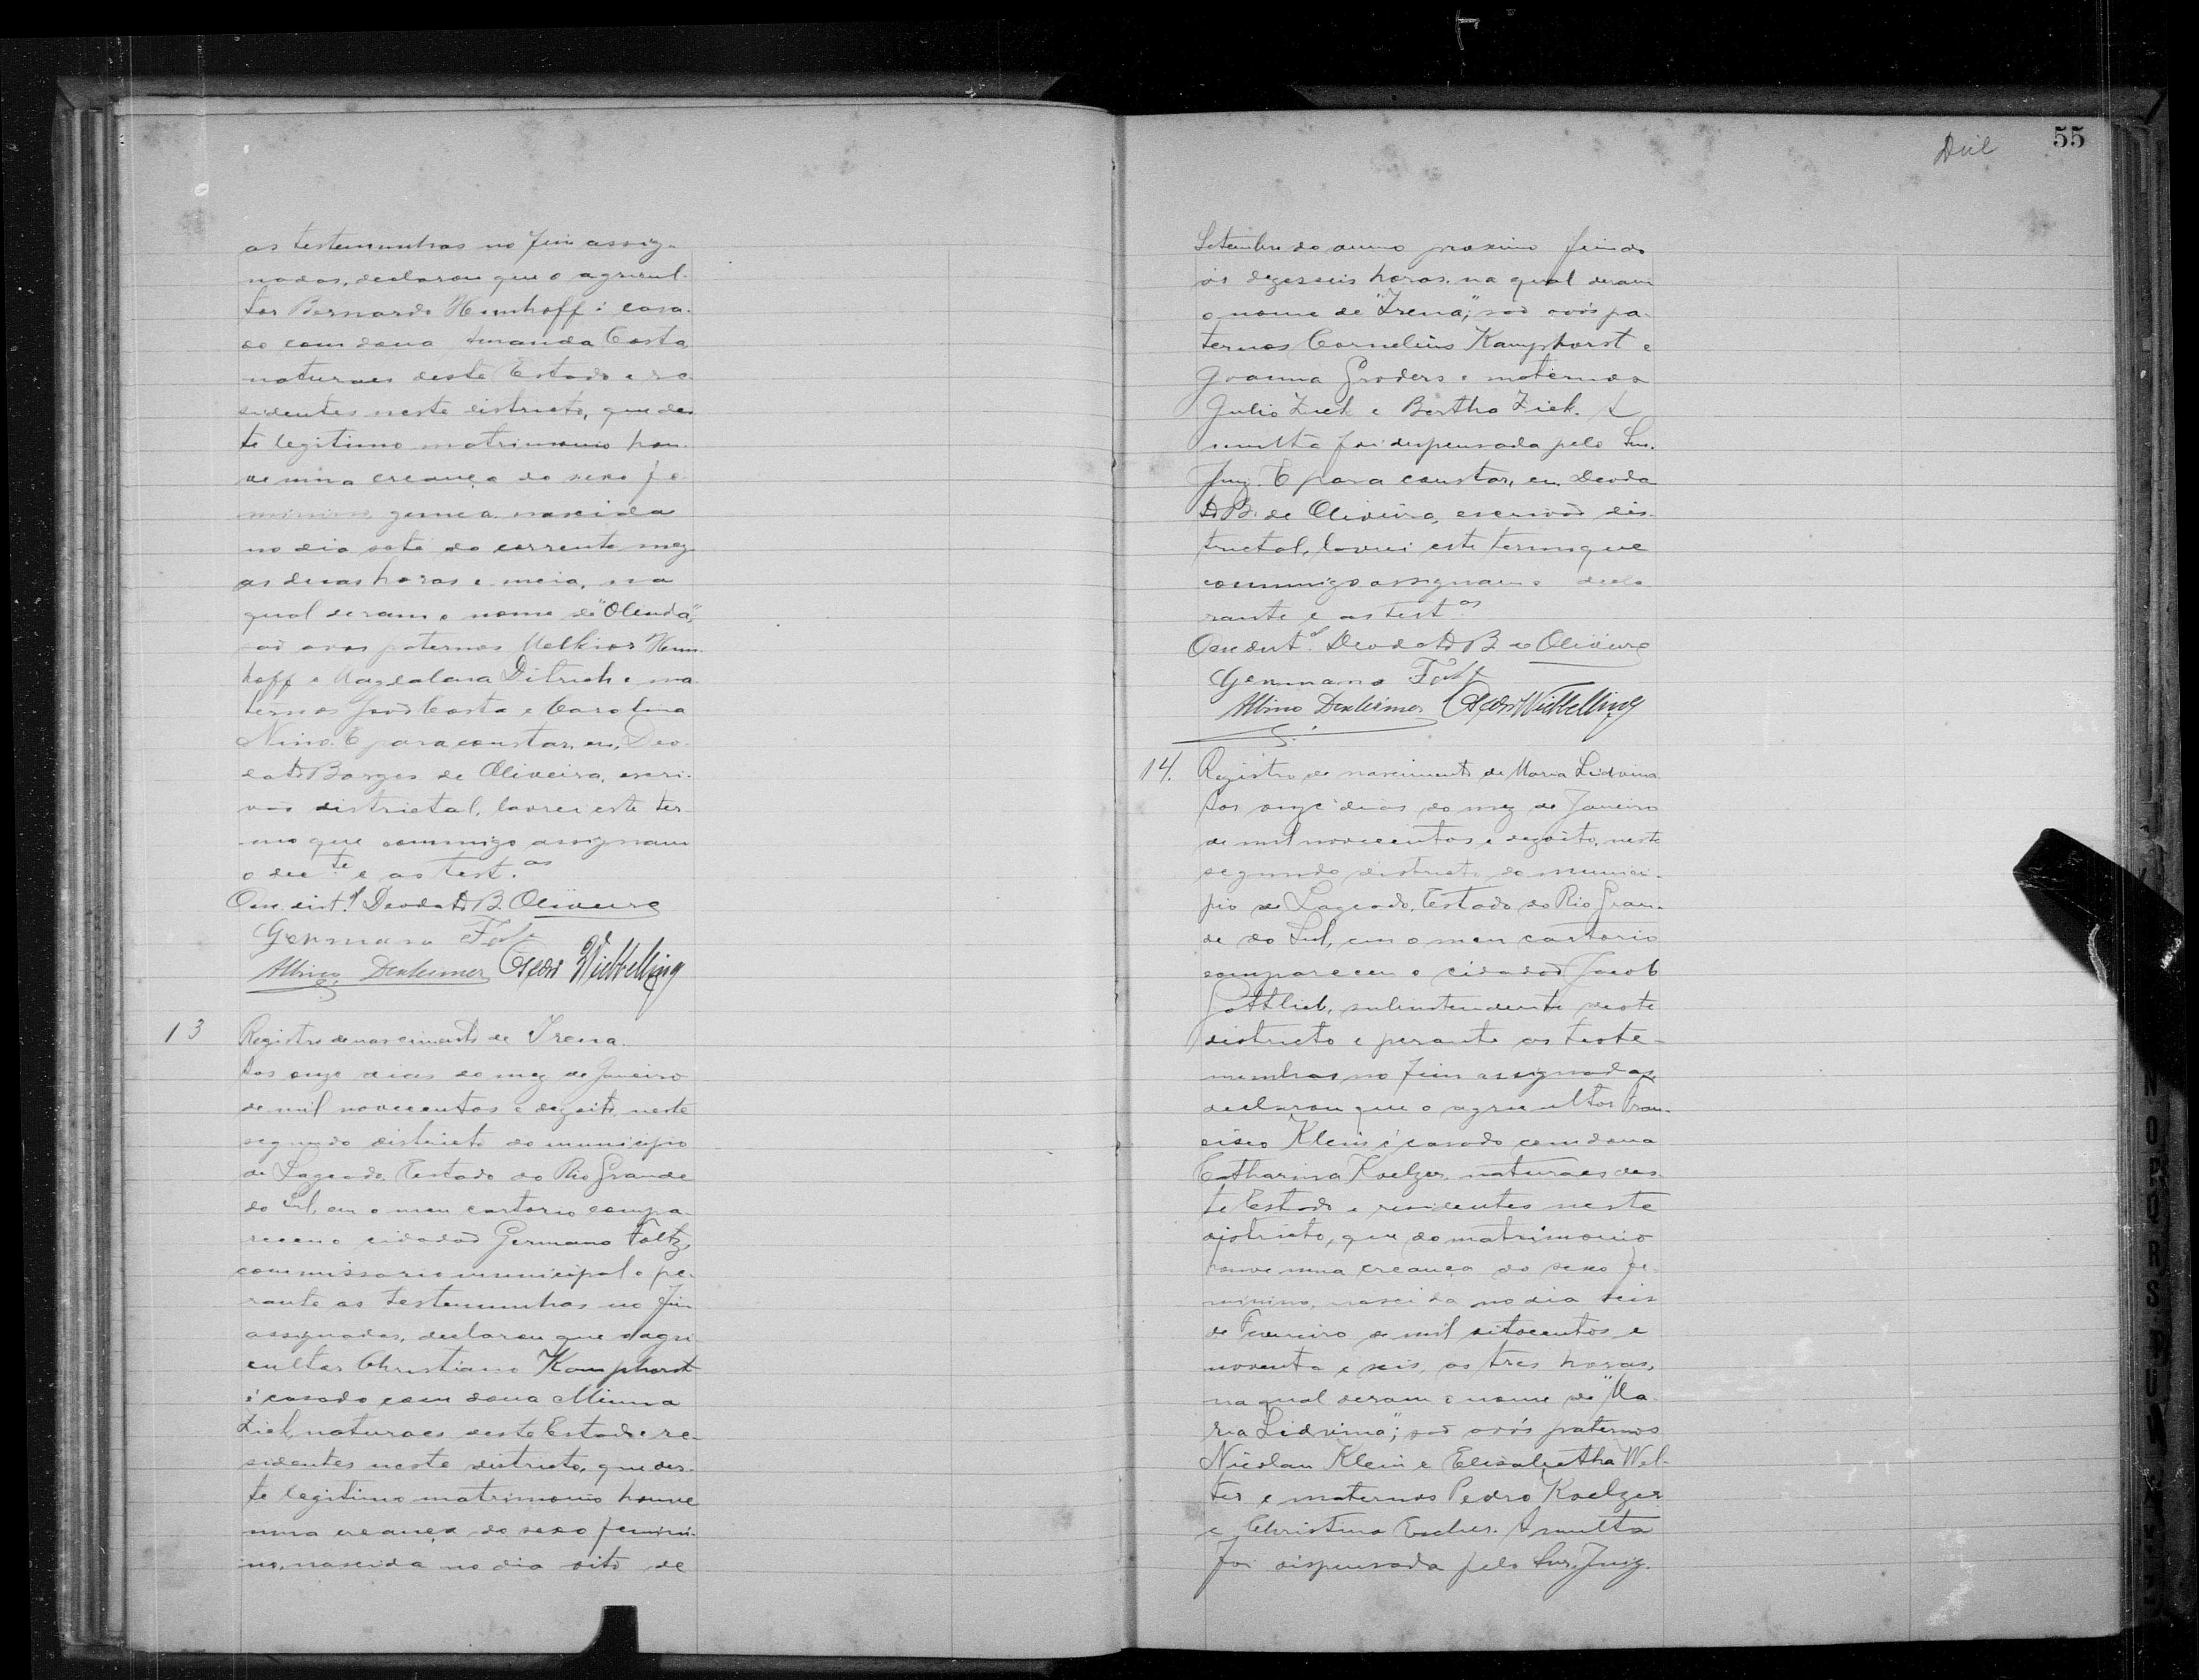 as testemunhas no fim assig-
nadas, declarou que o agricul-
tor Bernardo Hemhoff é casa-
do com dona Amanda Costa,
naturaes deste Estado e re-
sidentes neste districto, que des-
te legitimo matrimonio hou-
ve uma creança do sexo fe-
minino, gemea, nascida
no dia sete do corrente mez
as duas horas e meia, na
qual deram o nome de "Olinda",
são avos paternos Melkior Hem-
hoff e Magdalena Ditrich e ma-
ternos João Costa e Carolina
Nino. E para constar, eu, Deo-
dato Borges de Oliveira, escri-
vão districtal, lavrei este ter-
mo que commigo assignam
o dec.te e as test.as
Deodato B. Oliveira
Germano
Albino Dexheimer Pedro Wiebbelling
13
Registro de nascimento de Irena.
Aos onze dias do mez de Janeiro
de mil novecentos e dezoito, neste
segundo districto do municipio
de Lageado, Estado do Rio Grande
do Sul, em o meu cartorio compa-
receu o cidadão Germano Foltz,
commissario municipal e pe-
rante as testemunhas no fim
assignadas, declarou que o agri-
cultor Christiano Kamphorst
é casado com dona Minna
Ziek, naturaes deste Estado e re-
sidentes neste districto, que des-
te legitimo matrimonio houve
uma creança do sexo femini-
no, nascida no dia oito de
Diel
55
Setembro do anno proximo findo
ás dezeseis horas, na qual deram
o nome de "Irena", são avós pa-
ternos Cornelius Kamphorst e
Joanna Groders e maternos
Julio Ziek e Bertha Ziek. A
multa foi dispensada pelo Snr.
Juiz. E para constar, eu, Deoda-
to B. de Oliveira, escrivão dis-
trictal, lavrei este termo que
commigo assignam o decla-
rante e as test.as
Deodato B. de Oliveira
Germano
Albino Dexheimer Pedro Wiebbelling
14.
Registro de nascimento de Maria Lidvina.
Aos onze dias do mez de Janeiro
de mil novecentos e dezoito, neste
segundo districto do munici-
pio de Lageado, Estado do Rio Gran-
de do Sul, em o meu cartorio
compareceu o cidadão Jacob
Gottlieb, subintendente deste
districto e perante as teste-
munhas no fim assignadas,
declarou que o agricultor Fran-
cisco Klein é casado com dona
Catharina Koelzer, naturaes des-
te Estado e residentes neste
districto, que do matrimonio
houve uma creança do sexo fe-
minino, nascida no dia seis
de Fevereiro de mil oitocentos e
noventa e seis, as tres horas,
na qual deram o nome de "Ma-
ria Lidvina"; são avós paternos
Nicolau Klein e Elisabetha Wel-
ter e maternos Pedro Koelzer
e Christina Escher. A multa
foi dispensada pelo Snr. Juiz.